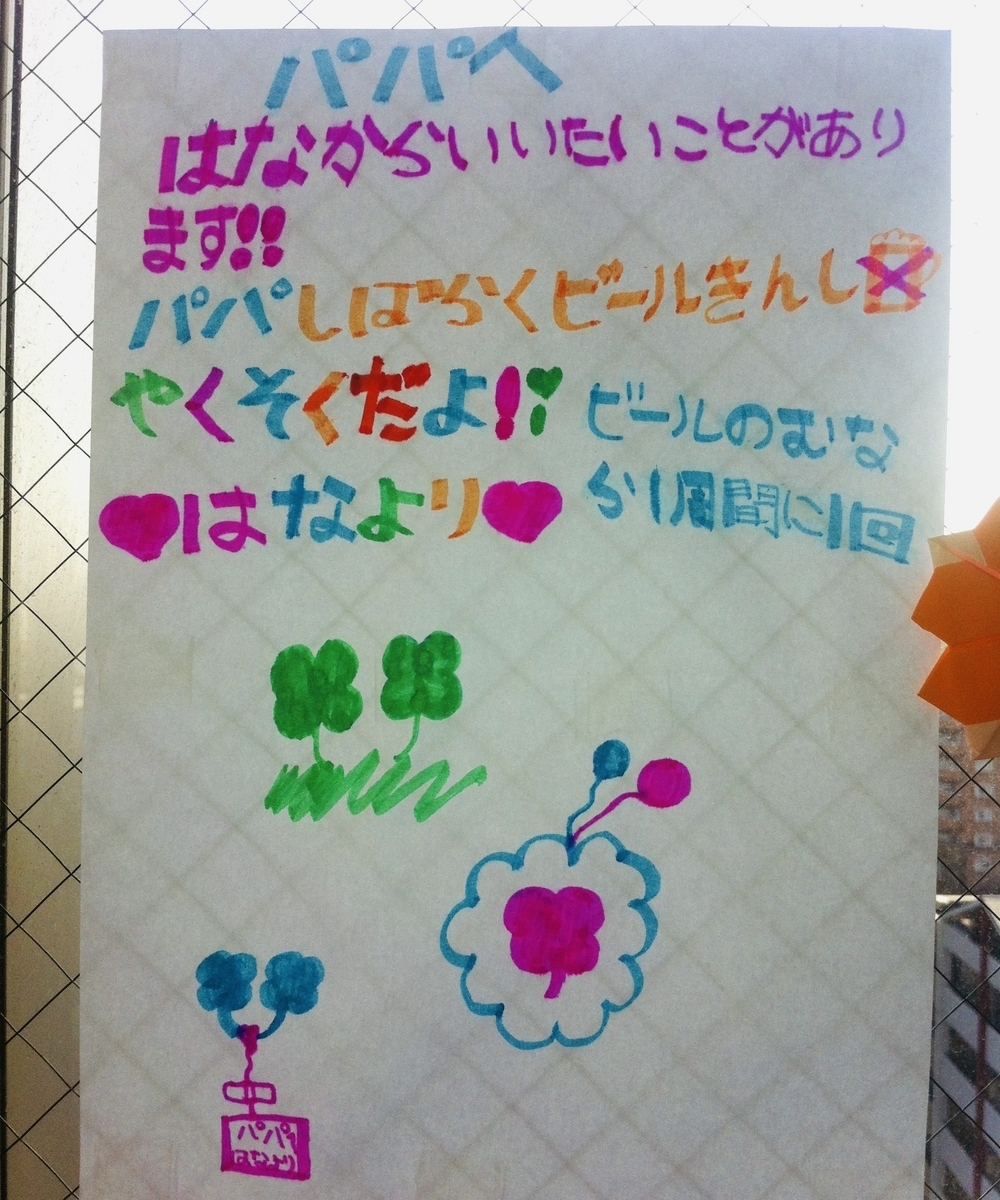 パパへ
はなからいいたいことがあり
ます!!
パパしばらくビールきんし
やくそくだよ!!
ビールのむな
ら1周間に1回
はなより
パパへ
はなより